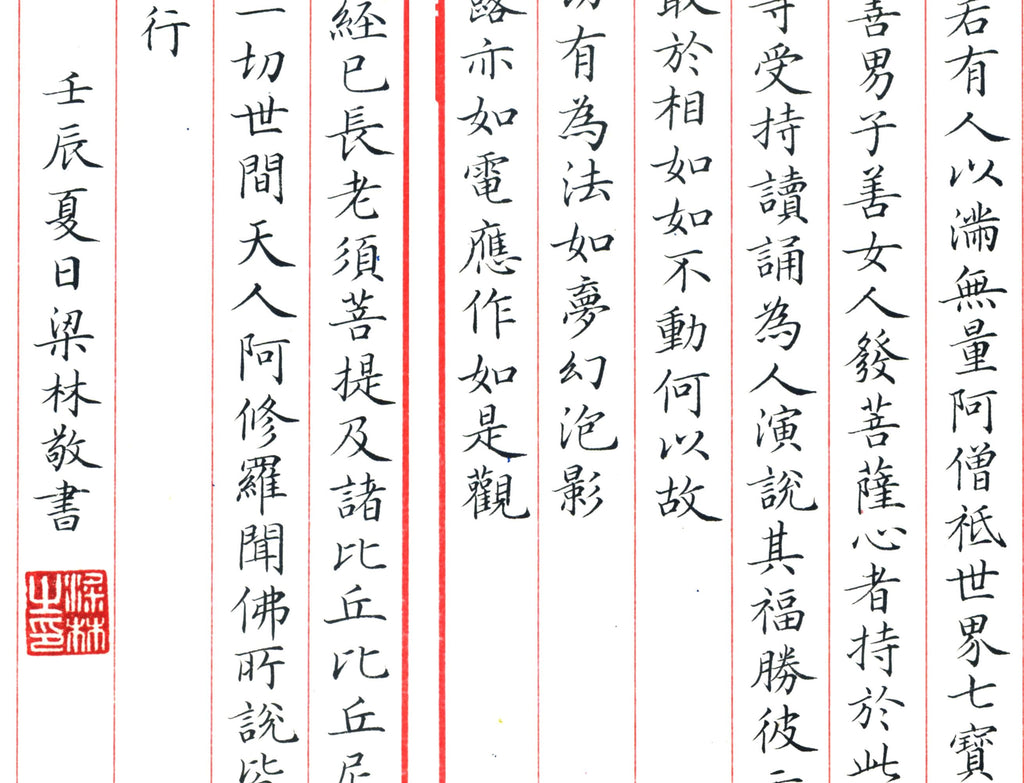 若有人以滿無量阿僧祇世界七寶
善男子善女人發菩薩心者持於此
等受持讀誦為人演說其福勝彼云
取於相如如不動何以故
切有為法如夢幻泡影
露亦如電應作如是觀
經已長老須菩提及諸比丘比丘尼
一切世間天人阿修羅聞佛所說皆
行
壬辰夏日梁林敬書
梁林之印